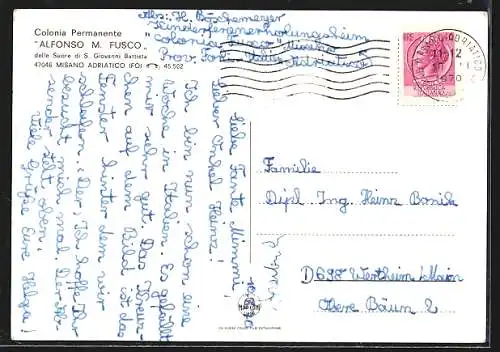 Colonia Permanente
"ALFONSO M. FUSCO"
delle Suore di S. Giovanni Battista
47046 MISANO ADRIATICO (FO) 45.502
Abs. H. Böschemeyer
Kinderferienerholungsheim
"Colonia Fusco" Misano
Prov. Forli
11-12
1970
Liebe Tante Mimmi,
lieber Onkel Heinz!
Ich bin nun schon eine
Woche in Italien. Es gefällt
mir sehr gut. Das Kreuz-
chen auf dem Bild ist das
Fenster hinter dem wir
schlafen. Ich hoffe Ihr
besucht mich mal. Der Ab-
sender steht oben.
Viele Grüße Eure Helga!
Familie
Dipl. Ing. Heinz Banik
D698 Wertheim/Main
Obere Bäun 2